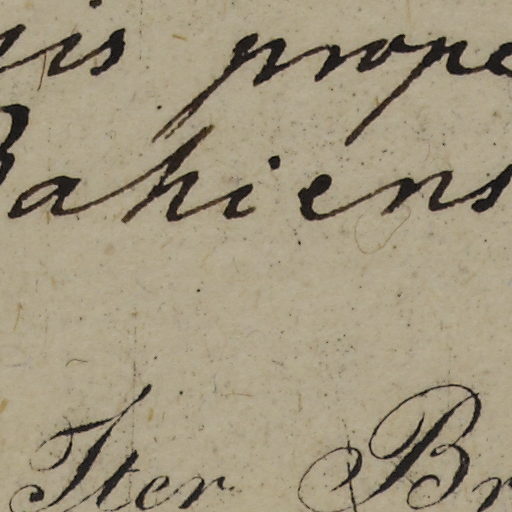 is prope
Bahiens
Iter Br